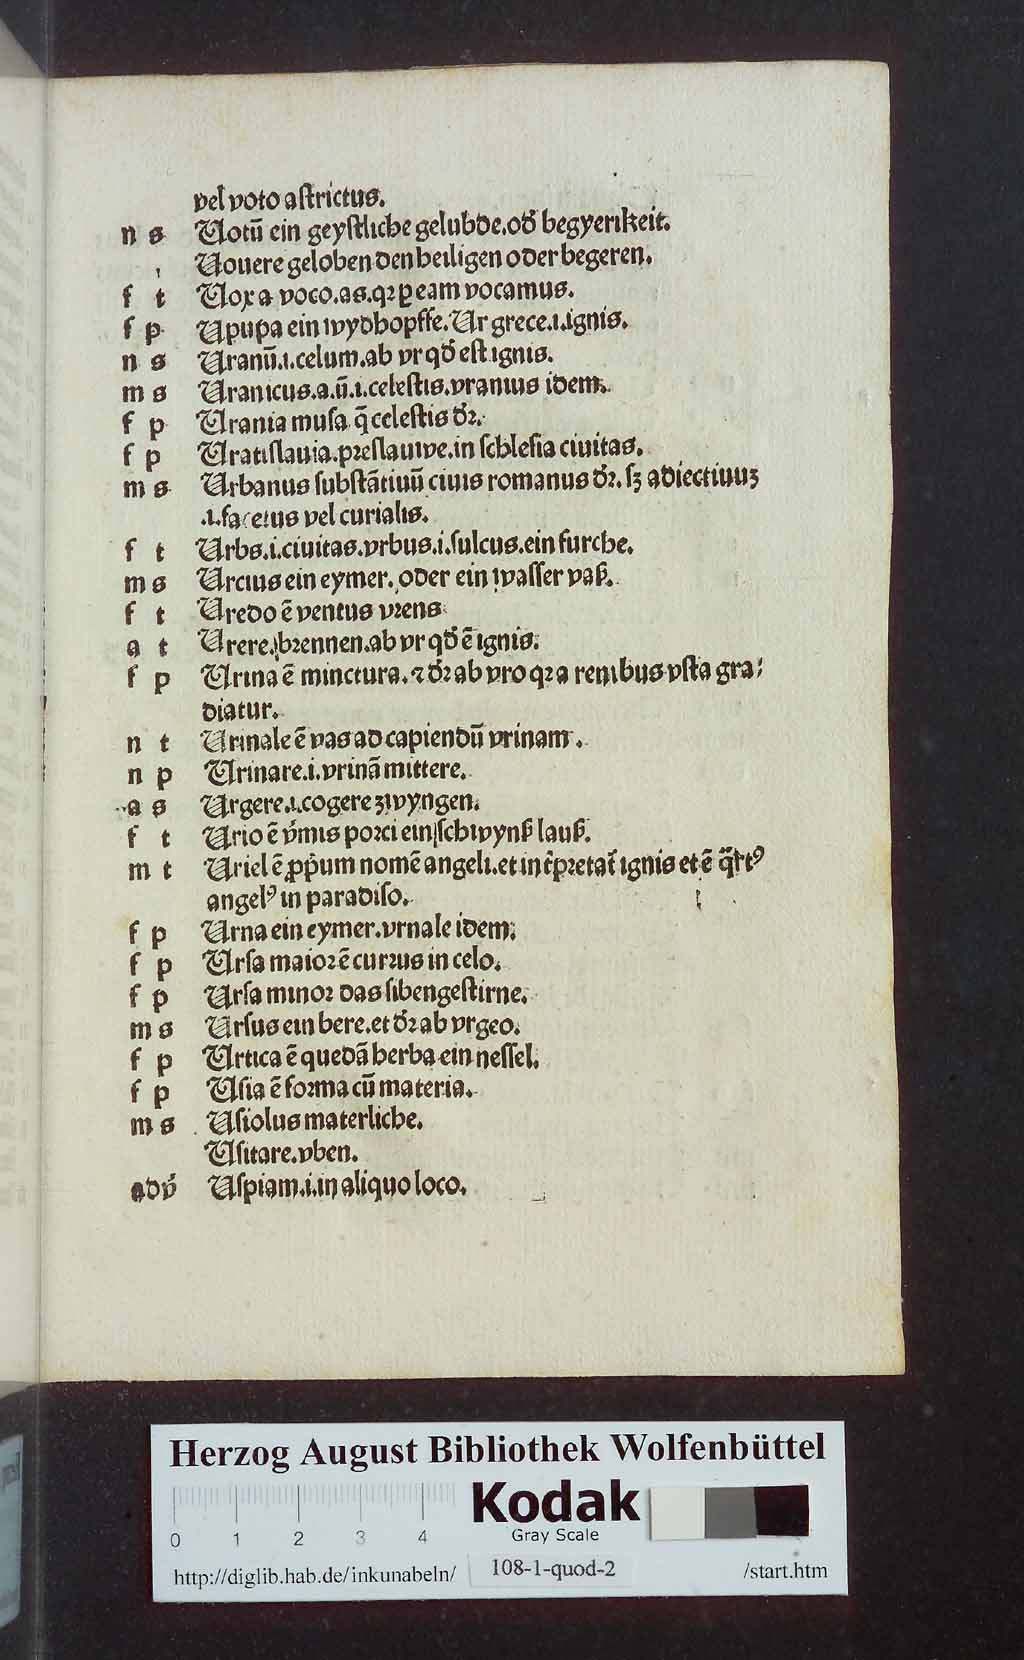 vel voto astrictus.
n s Uotū ein geystliche gelubde.od̕ begyerikeit.
Uouere geloben den heiligen oder begeren.
f t Uox a voco.as.qꝛ ꝑ eam vocamus.
f p Upupa ein wydhopffe.Ur grece.i.ignis.
n s Uranū.i.celum.ab vr qd̕ est ignis.
m s Uranicus.a.ū.i.celestis.vranius idem.
f p Urania musa q̄ celestis dꝛ̕.
f p Uratislauia.pꝛeslauwe.in schlesia ciuitas.
m s Urbanus substātiuū ciuis romanus dꝛ̕. sꝫ adiectiuuꝫ
.i.facetus vel curialis.
f t Urbs.i.ciuitas.vrbus.i.sulcus.ein furche.
m s Urcius ein eymer.oder ein wasser vaß.
f t Uredo ē ventus vꝛens
a t Urere.bꝛennen.ab vr qd̕ ē ignis.
f p Urina ē minctura.⁊ dꝛ̕ ab vro qꝛ a renibus vsta gra⸗
diatur.
n t Urinale ē vas ad capiendū vrinam.
n p Urinare.i.vrinā mittere.
a s Urgere.i.cogere zwyngen.
f t Urio ē v̕mis poꝛci ein schwynß lauß.
m t Uriel ē ꝓpꝛium nomē angeli.et int̕pꝛetat̕ ignis et ē q̄rtꝰ
angelꝰ in paradiso.
f p Urna ein eymer.vrnale idem.
f p Ursa maioꝛ ē currus in celo.
f p Ursa minoꝛ das sibengestirne.
m s Ursus ein bere.et dꝛ̕ ab vrgeo.
f p Urtica ē quedā herba ein nessel.
f p Usia ē foꝛma cū materia.
m s Usiolus materliche.
Usitare.vben.
adv̕ Uspiam.i.in aliquo loco.
Herzog August Bibliothek Wolfenbüttel
0 1 2 3 4
Kodak
Gray Scale
http://diglib.hab.de/inkunabeln/ 108-1-quod-2 /start.htm